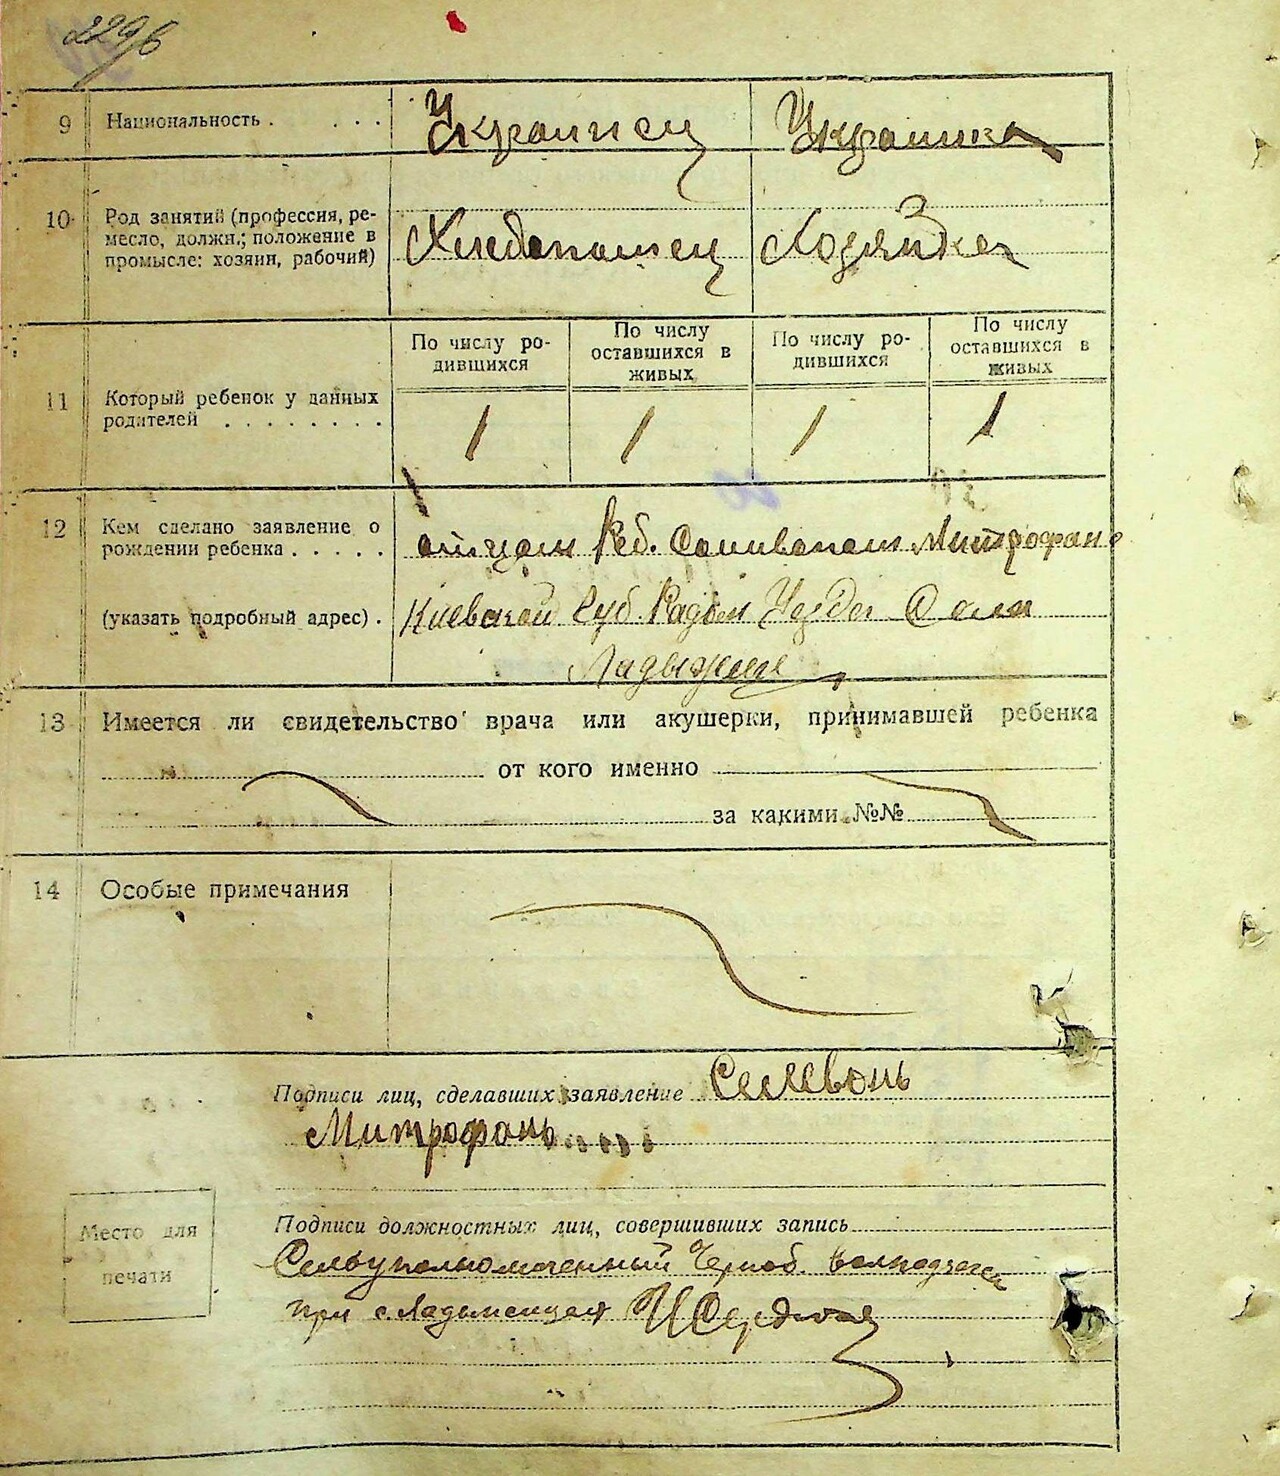 229б
9 Национальность . . . . Украинец Украинка
10 Род занятий (профессия, ре-
месло, должн.; положение в
промысле: хозяин, рабочий)
Хлебопашец Ходяйка
По числу ро-
дившихся
По числу
оставшихся в
живых
По числу ро-
дившихся
По числу
оставшихся в
живых
11 Который ребенок у данных
родителей . . . . . . . .
1 1 1 1
12 Кем сделано заявление о
рождении ребенка . . . . .
отцом Реб. Митрофан
(указать подробный адрес) .
Киевской Губ. Радом Уезда Села
13 Имеется ли свидетельство врача или акушерки, принимавшей ребенка
от кого именно
за какими №№
14 Особые примечания
Подписи лиц, сделавших заявление Селевонь
Митрофань
Подписи должностных лиц, совершивших запись
Место для
печати
Сельуполномоченный Черноб.
при с.